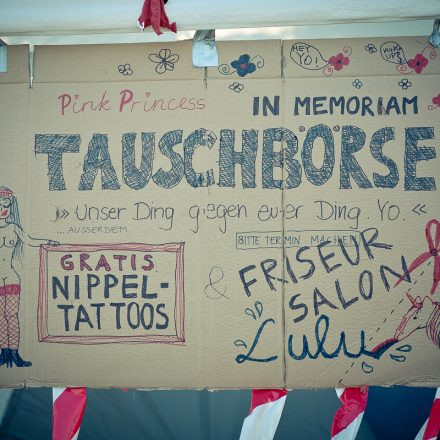 HEY YO!
Pink Princess IN MEMORIAM
TAUSCHBÖRSE
» Unser Ding gegen euer Ding. Yo. «
... AUSSERDEM
BITTE TERMIN MACHEN
GRATIS
NIPPEL-
TATTOOS
&
FRISEUR
SALON
Lulu